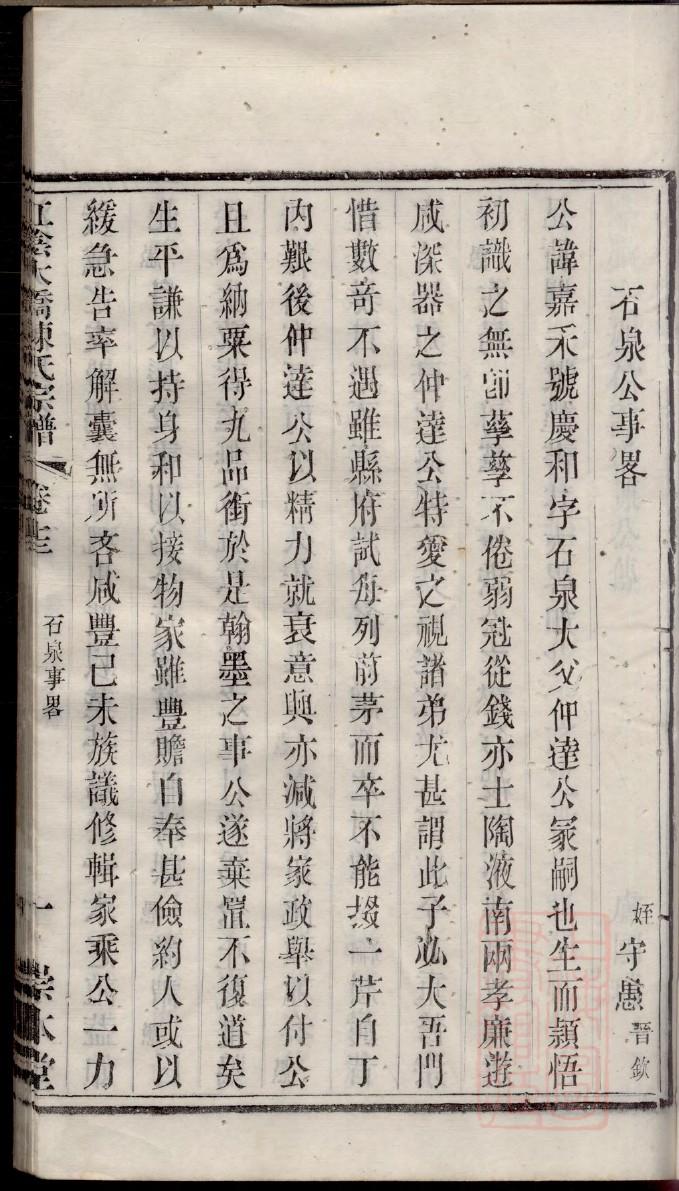 石泉公事畧
姪守愚晋欽
公諱嘉禾號慶和字石泉大父仲達公冢嗣也生而頴悟
初識之無卽孳孳不倦弱冠從錢亦士陶液南兩孝廉遊
咸深器之仲達公特愛之視諸弟尤甚謂此子必大吾門
惜數奇不遇雖縣府試每列前茅而卒不能掇一芹自丁
內艱後仲達公以精力就衰意興亦減將家政舉以付公
且爲納粟得九品銜於是翰墨之事公遂棄置不復道矣
生平謙以持身和以接物家雖豐贍自奉甚儉約人或以
緩急告率解囊無所吝咸豐己未族議修輯家乘公一力
江陰大橋陳氏宗譜 卷 石泉事畧 一 宗本堂